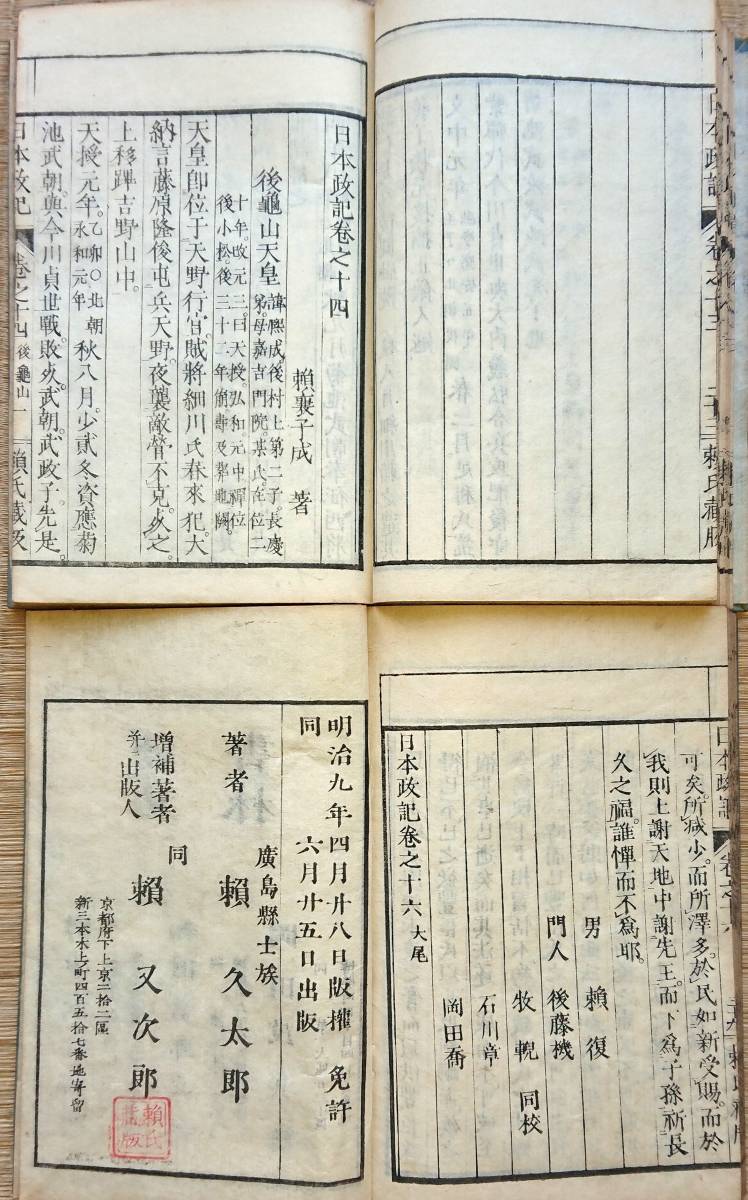 日本政記
卷之十三
頼氏藏版
日本政記卷之十四
頼襄子成 著
後龜山天皇
諱熙成。後村上第二子。長慶
弟。母嘉吉門院。某氏。在位二
十年。改元三。曰天授。弘和元中。禪位
後小松。後三十二年崩。壽及葬地闕。
天皇即位于天野行宮。賊將細川氏春來犯。大
納言藤原隆俊屯兵天野。夜襲敵營不克。死之。
上移蹕吉野山中。
天授元年。乙卯〇北朝
永和元年
秋八月。少貳冬資應菊
池武朝。與今川貞世戰。敗死。武朝。武政子。先是。
日本政記
卷之十四
後龜山
一
頼氏藏版
日本政記
卷之十六
頼氏藏版
可矣。所減少。而所澤多。於民如新受賜。而於
我則上謝天地。中謝先王。而下爲子孫祈長
久之福。誰憚而不爲耶。
男 頼復
門人 後藤機
牧輗 同校
石川章
岡田喬
日本政記卷之十六 大尾
明治九年四月廿八日版權免許
同 六月廿五日出版
廣島縣士族
著者 頼久太郎
増補著者
并ニ出版人
同 頼又次郎
京都府下上京二拾二區
新三本木上ノ町四百五拾七番地寄留
頼氏
藏版